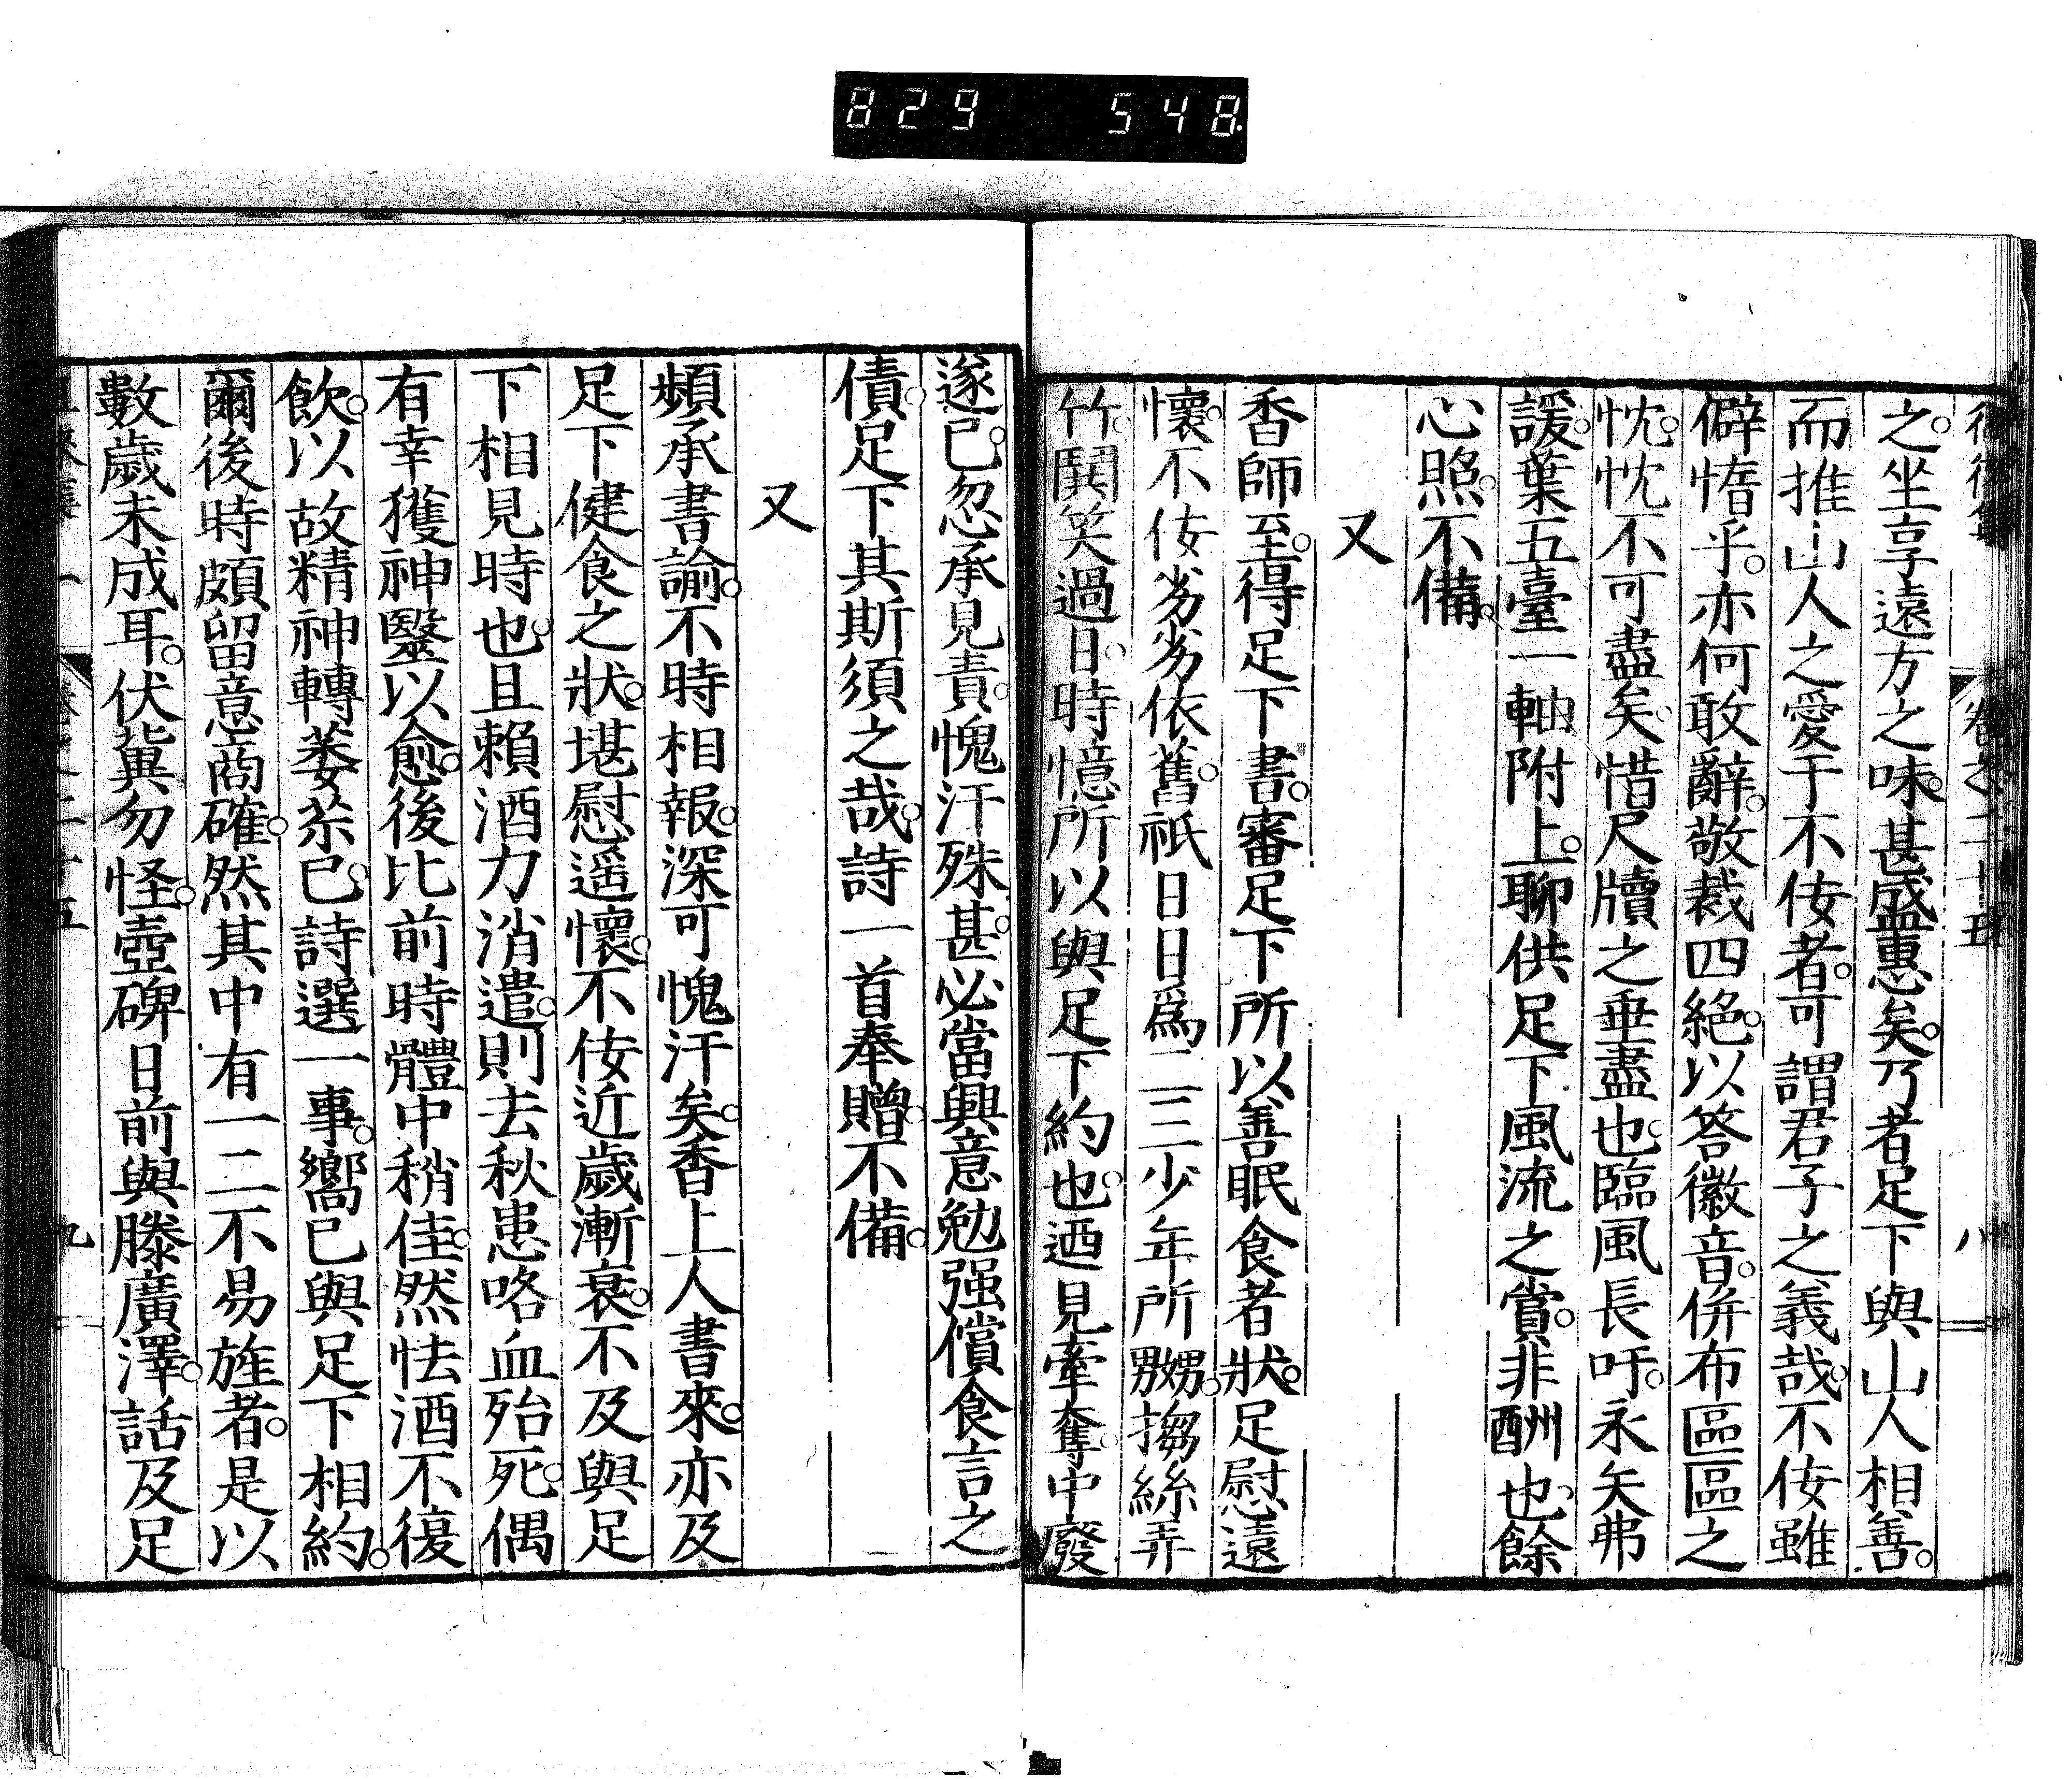 829 548
卷之二十五 八
之。坐享遠方之味。甚盛惠矣。乃者足下與山人相善。
而推山人之愛于不佞者。可謂君子之義哉。不佞雖
僻惰乎。亦何敢辭。敬裁四絕。以答徽音。併布區區之
忱。忱不可盡矣。惜尺牘之垂盡也。臨風長吁。永矢弗
諼。葉五臺一軸附上。聊供足下風流之賞。非酬也。餘
心照。不備。
又
香師至。得足下書。審足下所以善眠食者狀。足慰遠
懷。不佞劣劣依舊。祇日日爲二三少年所嬲。搊絲弄
竹。鬨笑過日。時憶所以與足下約也。迺見牽奪。中廢
遂已。忽承見責。愧汗殊甚。必當興意勉强償食言之
債。足下其斯須之哉。詩一首奉贈。不備。
又
頻承書諭。不時相報。深可愧汗矣。香上人書來。亦及
足下健食之狀。堪慰遥懷。不佞近歲漸衰。不及與足
下相見時也。且賴酒力消遣。則去秋患咯血殆死。偶
有幸獲神醫以愈。後比前時體中稍佳。然怯酒不復
飲。以故精神轉萎苶已。詩選一事。嚮已與足下相約。
爾後時頗留意商確。然其中有一二不易旌者。是以
數歲未成耳。伏冀勿怪。壺碑日前與滕廣澤。話及足
九